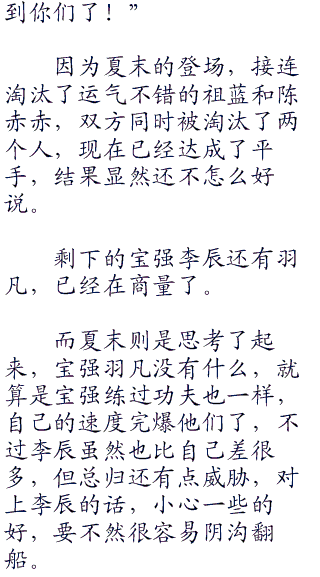 到你们了！”
因为夏末的登场，接连
淘汰了运气不错的祖蓝和陈
赤赤，双方同时被淘汰了两
个人，现在已经达成了平
手，结果显然还不怎么好
说。
剩下的宝强李辰还有羽
凡，已经在商量了。
而夏末则是思考了起
来，宝强羽凡没有什么，就
算是宝强练过功夫也一样，
自己的速度完爆他们了，不
过李辰虽然也比自己差很
多，但总归还有点威胁，对
上李辰的话，小心一些的
好，要不然很容易阴沟翻
船。